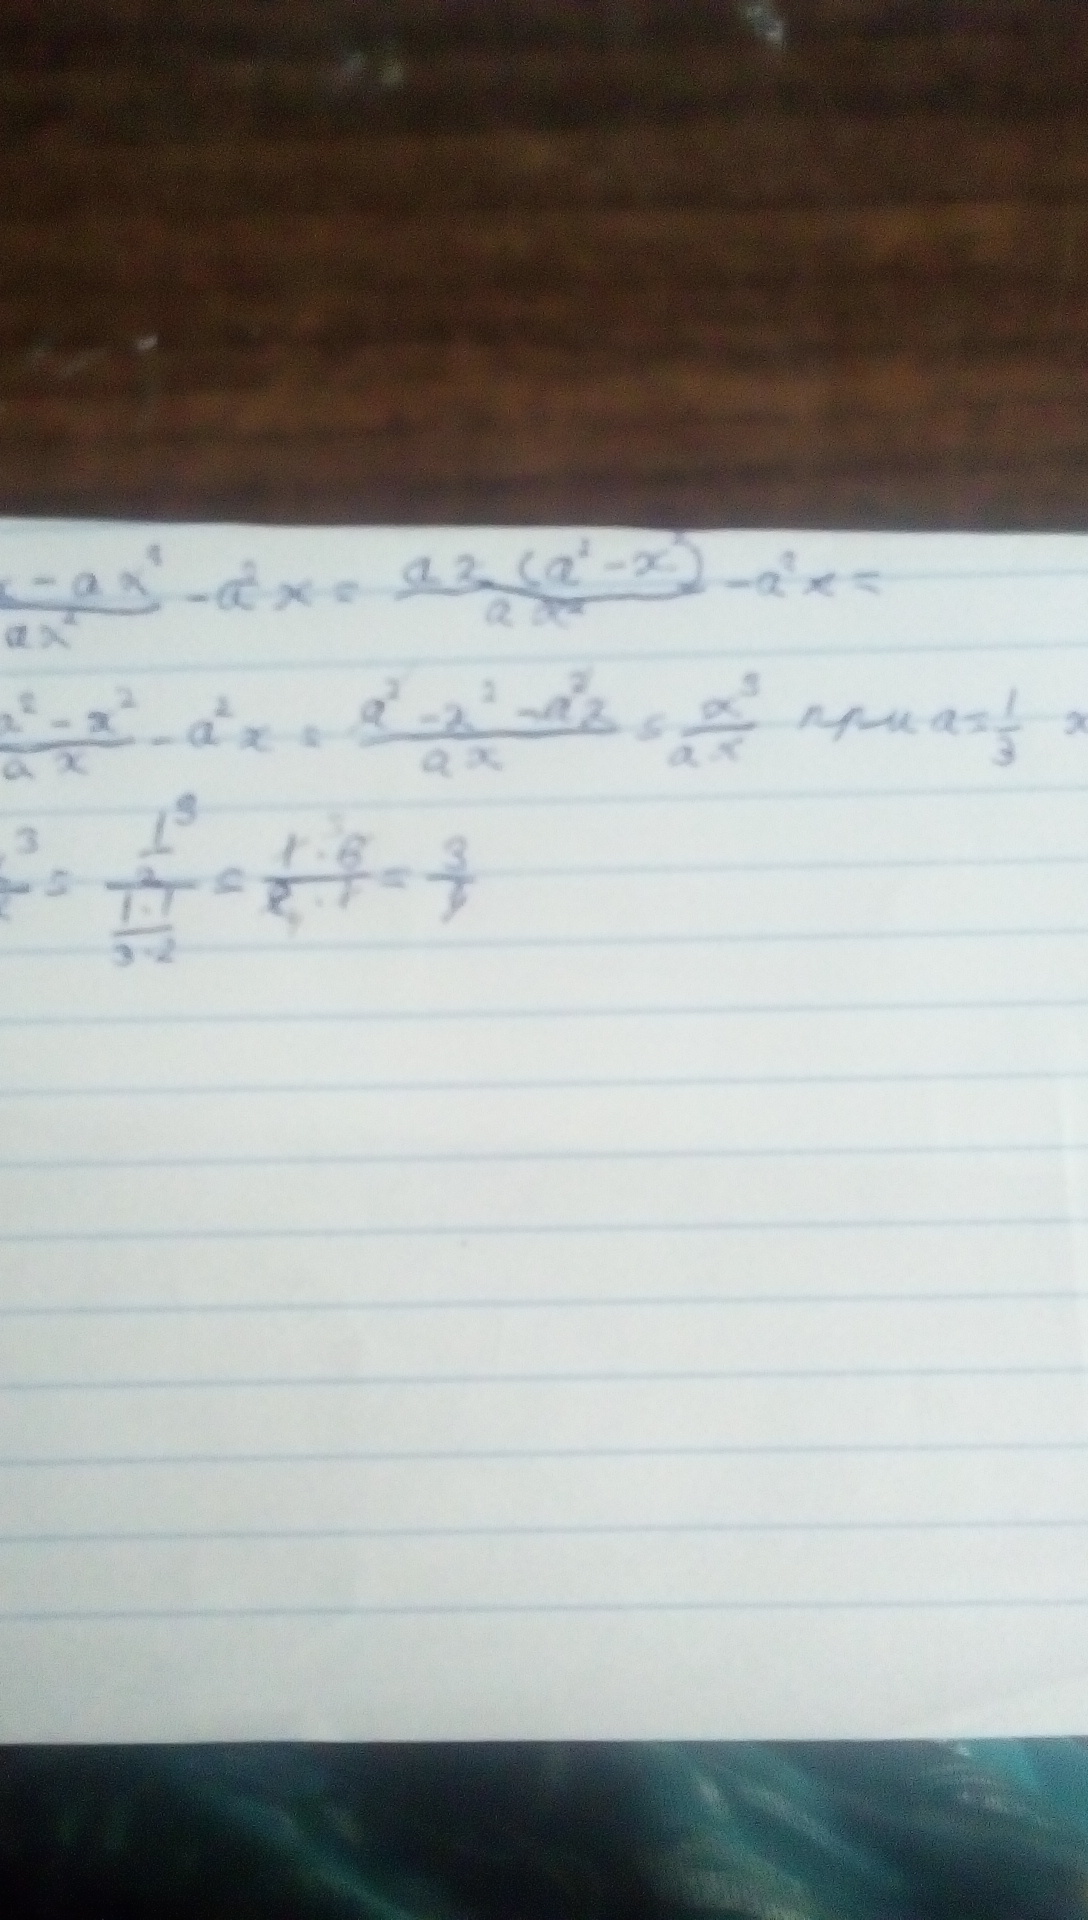 x - ax³/ax² - a²x = ax(a² - x²)/ax² - a²x =
a² - x²/ax - a²x = a² - x² - a²x/ax = x³/ax при a = 1/3 x
³ = 1³/2/1·1/3·2 = 1·6/2·1 = 3/1